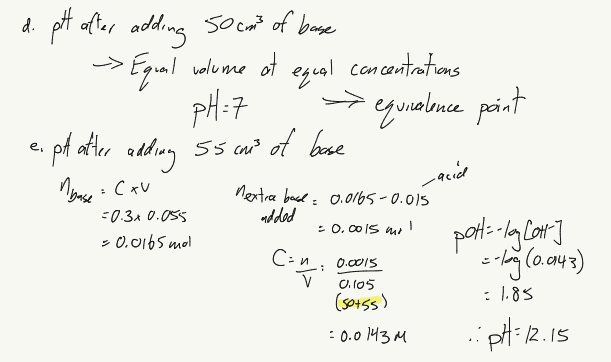 d. pH after adding 50 cm³ of base
→ Equal volume at equal concentrations
pH=7 → equivalence point
e. pH after adding 55 cm³ of base
n base = C x V
= 0.3 x 0.055
= 0.0165 mol
n extra base added = 0.0165 - 0.015 acid
= 0.0015 mol
C = n/V = 0.0015/0.105
(50+55)
= 0.0143 M
pOH = -log [OH-]
= -log (0.0143)
= 1.85
∴ pH = 12.15